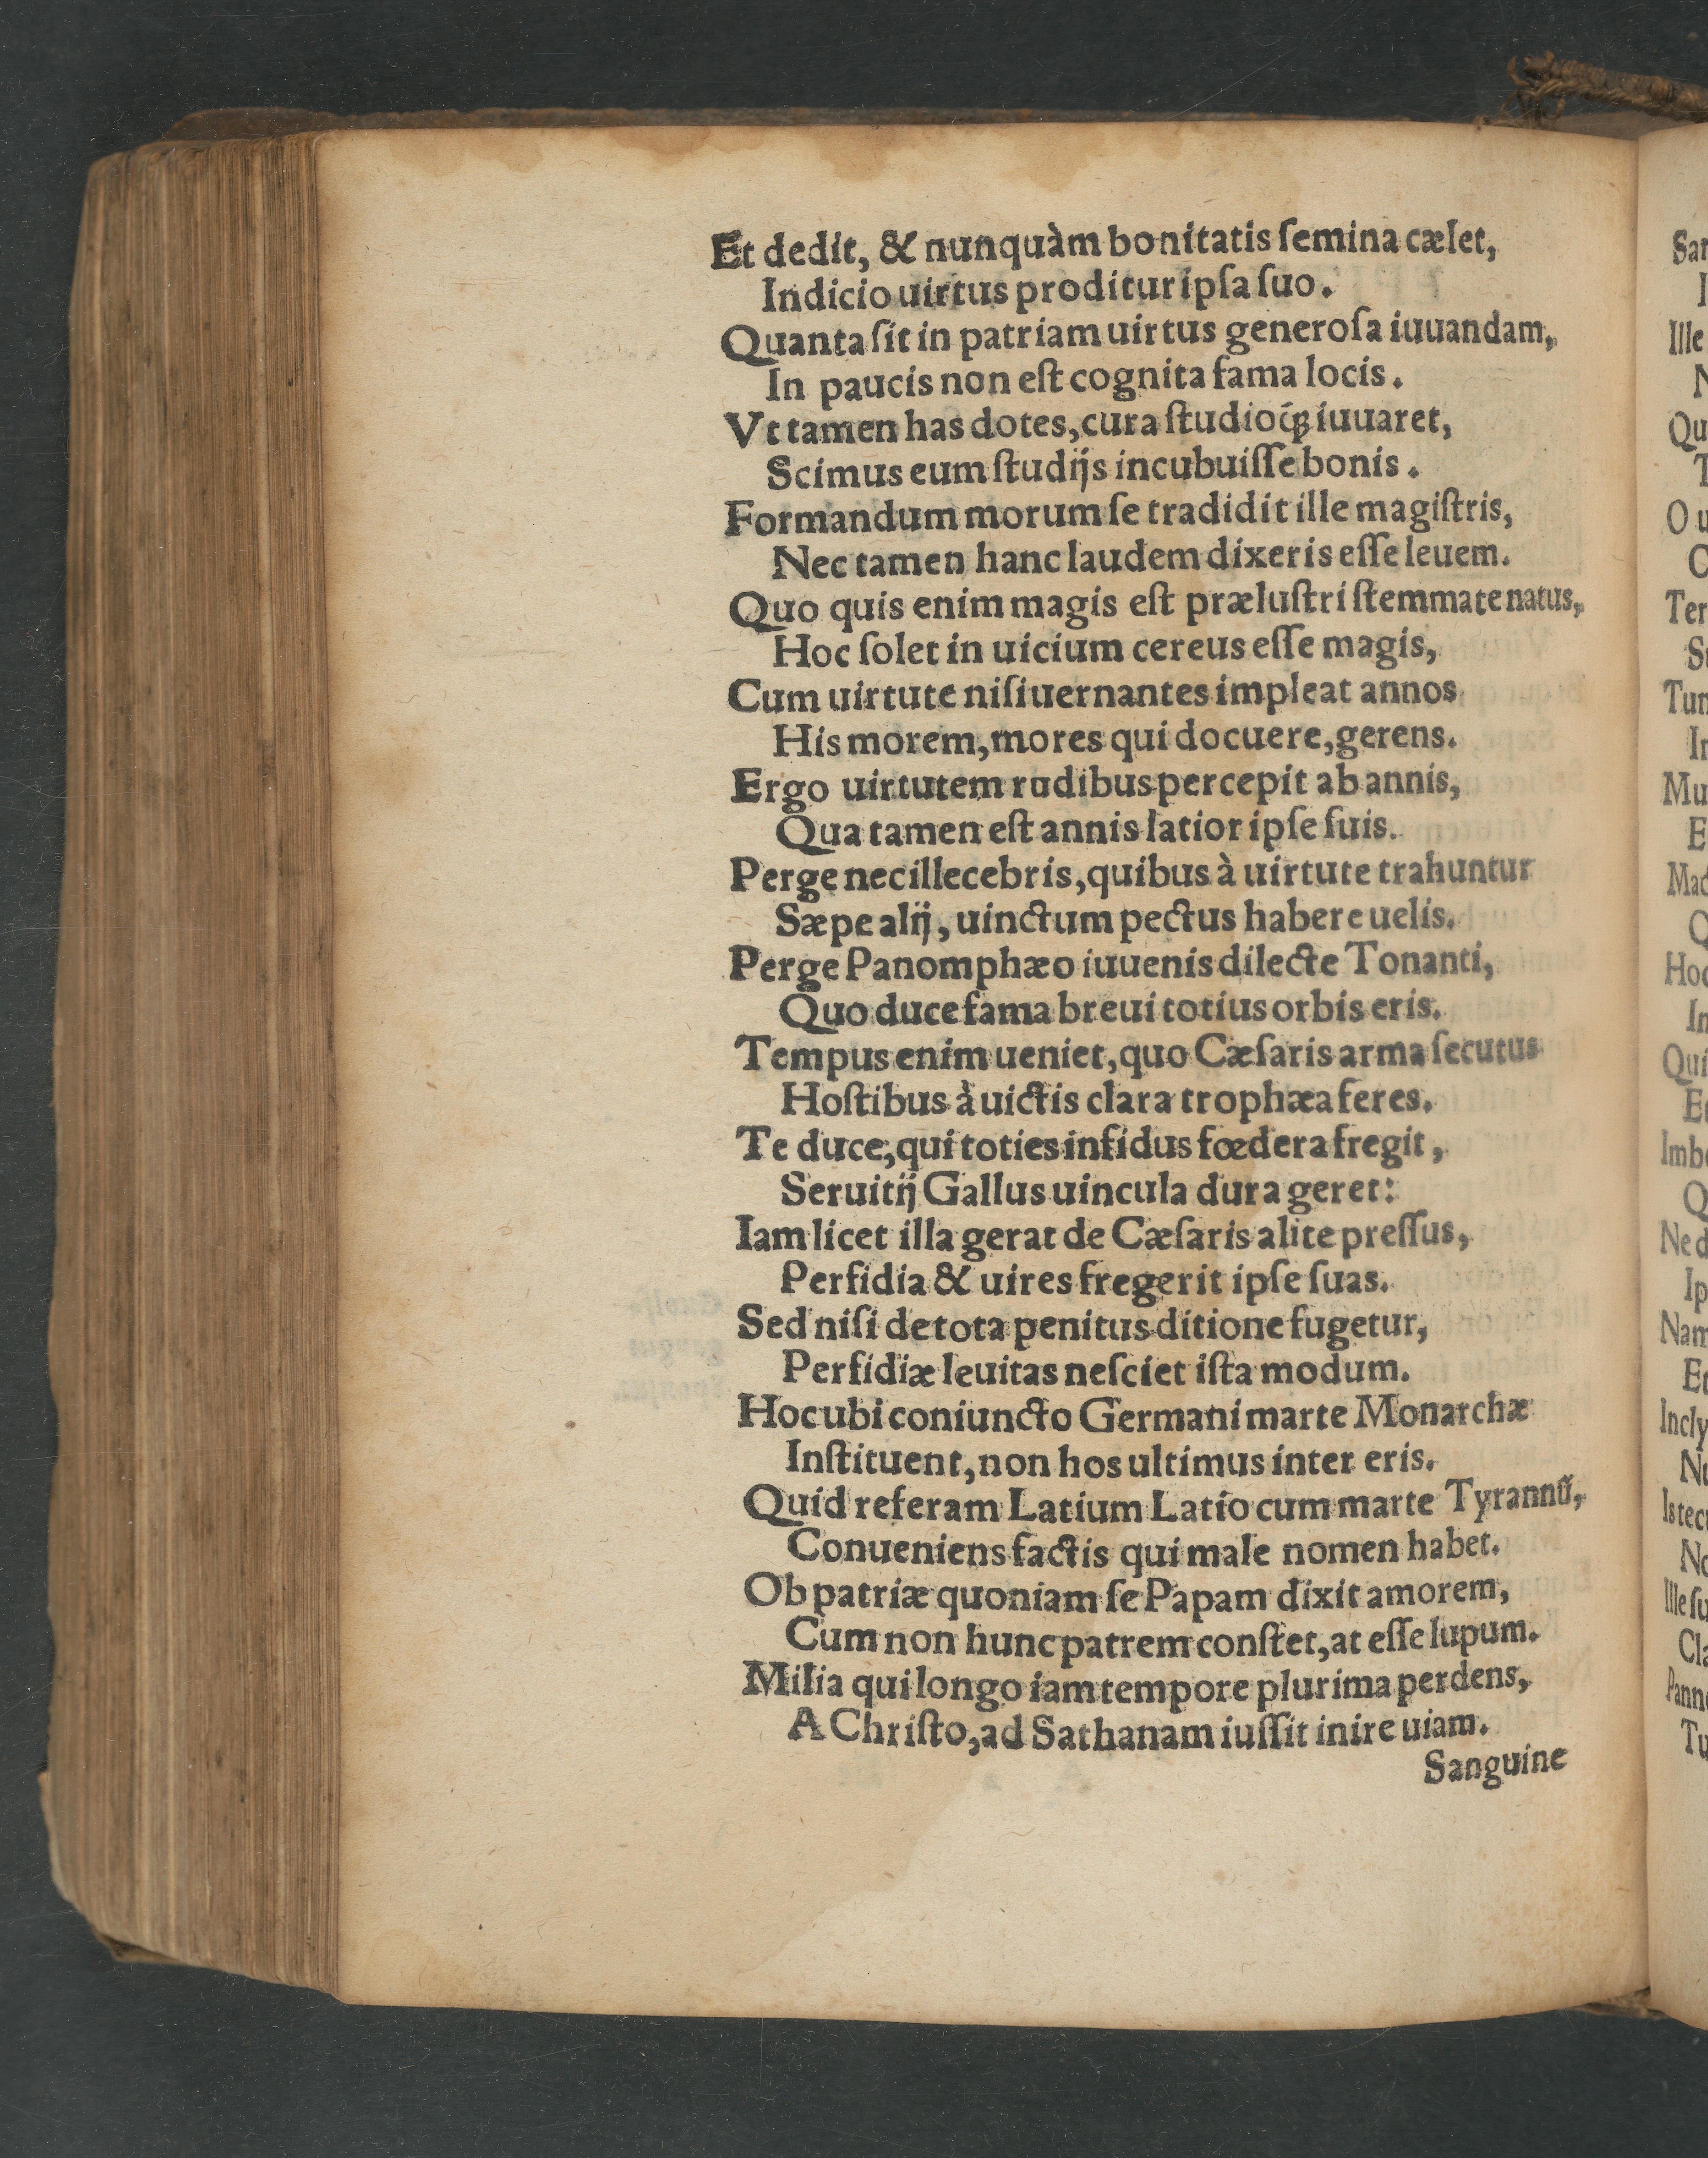 Et dedit, & nunquàm bonitatis ſemina cælet,
Indicio uirtus proditur ipſa ſuo.
Quanta ſit in patriam uirtus generoſa iuuandam,
In paucis non eſt cognita fama locis.
Vt tamen has dotes, cura ſtudioq́ꝫ iuuaret,
Scimus eum ſtudijs incubuiſſe bonis.
Formandum morum ſe tradidit ille magiſtris,
Nec tamen hanc laudem dixeris eſſe leuem.
Quo quis enim magis eſt præluſtri ſtemmate natus,
Hoc ſolet in uicium cereus eſſe magis,
Cum uirtute niſi uernantes impleat annos
His morem, mores qui docuere, gerens.
Ergo uirtutem rudibus percepit ab annis,
Qua tamen eſt annis latior ipſe ſuis.
Perge nec illecebris, quibus à uirtute trahuntur
Sæpe alij, uinctum pectus habere uelis.
Perge Panomphæo iuuenis dilecte Tonanti,
Quo duce fama breui totius orbis eris.
Tempus enim ueniet, quo Cæſaris arma ſecutus
Hoſtibus à uictis clara trophæa feres.
Te duce, qui toties infidus fœdera fregit,
Seruitij Gallus uincula dura geret:
Iam licet illa gerat de Cæſaris alite preſſus,
Perfidia & uires fregerit ipſe ſuas.
Sed niſi de tota penitus ditione fugetur,
Perfidiæ leuitas neſciet iſta modum.
Hoc ubi coniuncto Germani marte Monarchæ
Inſtituent, non hos ultimus inter eris.
Quid referam Latium Latio cum marte Tyrannũ,
Conueniens factis qui male nomen habet.
Ob patriæ quoniam ſe Papam dixit amorem,
Cum non hunc patrem conſtet, at eſſe lupum.
Milia qui longo iam tempore plurima perdens,
A Chriſto, ad Sathanam iuſſit inire uiam.
Sanguine